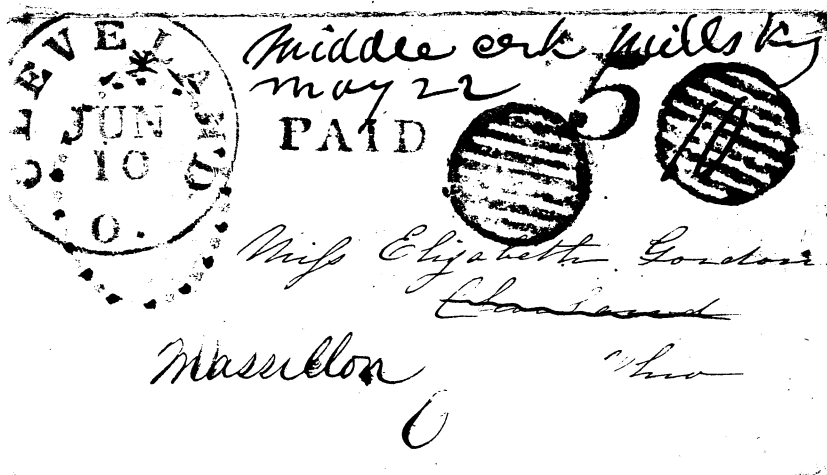 CLEVELAND
JUN
10
O.
middle cork mills Ky
may 22
PAID
5
Miss Elizabeth Gordon
Cleaveland
Massillon Ohio